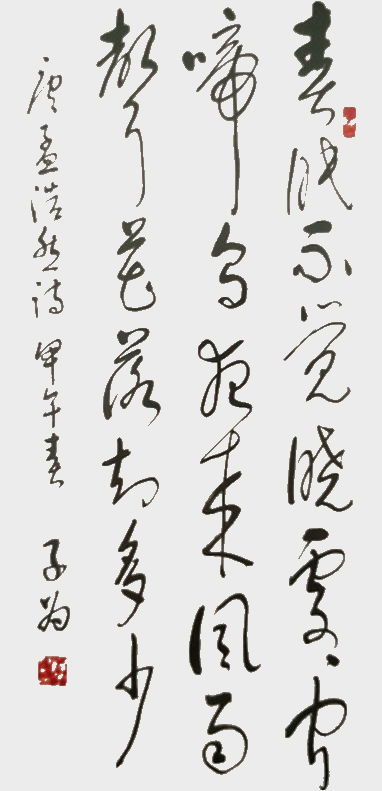 春眠不觉晓处处闻
啼鸟夜来风雨
声花落知多少
唐孟浩然诗 甲午春 子为